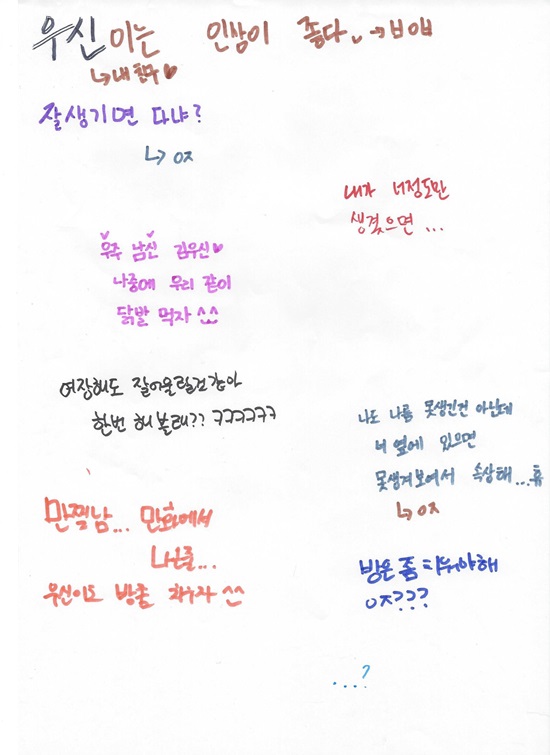 우신이는 인상이 좋다. → ㅂㅇㅂ
↳ 내 친구♥
잘생기면 다냐?
↳ ㅇㅈ
내가 너정도만
생겼으면 ...
우주 남신 김우신♥
나중에 우리 같이
닭발 먹자 ^^
여장해도 잘어울릴건같아
한번 해볼래?? ㅋㅋㅋㅋㅋㅋ
나도 나름 못생긴건 아닌데
너 옆에 있으면
못생겨보여서 속상해...휴
↳ ㅇㅈ
만찢남... 만화에서
나온줄...
우신이도 방좀 치우자 ^^
방은 좀 치워야해
ㅇㅈ???
...?